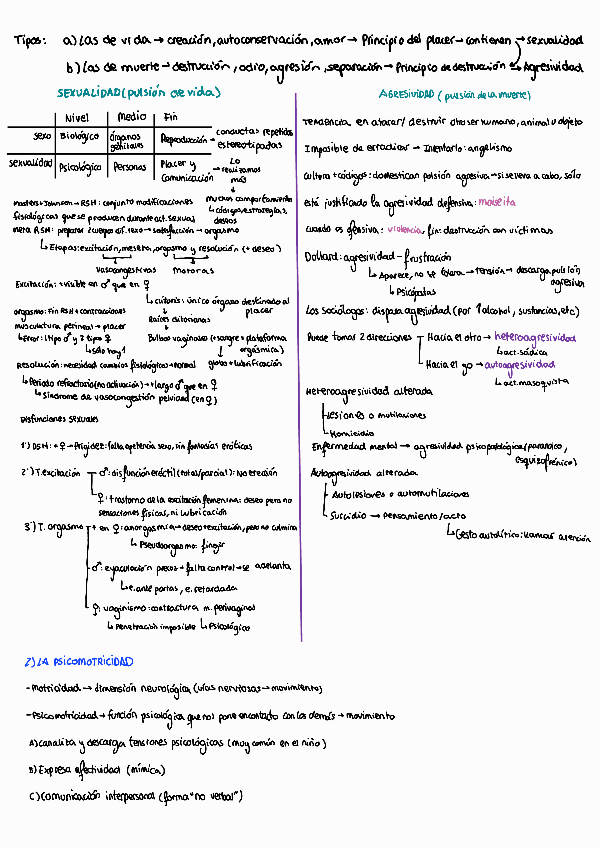 Tipos: a) Las de vida → creación, autoconservación, amor → Principio del placer → contienen → sexualidad
b) Las de muerte → destrucción, odio, agresión, separación → Principio de destrucción ↔ Agresividad
SEXUALIDAD (pulsión de vida)
Nivel Medio Fin
sexo Biológico órganos genitales Reproducción → conductas repetidas estereotipadas
sexualidad Psicológico Personas Placer y Comunicación → Lo realizamos más
↓
muchos comportamientos
Masters + Johnson → RSH: conjunto modificaciones
↳ códigos, estrategias, deseos
fisiológicas que se producen durante act. sexual
Meta RSH: preparar 2 cuerpos dif. sexo → satisfacción → orgasmo
↳ Etapas: excitación, meseta, orgasmo y resolución (+ deseo)
vasocongestivas motoras
Excitación: + visible en ♂ que en ♀
↳ clítoris: único órgano destinado al placer
orgasmo: fin RSH + contracciones
Raíces clitorianas
musculatura perineal → placer
↳ Error: 1 tipo ♂ y 2 tipo ♀
Bulbos vaginales (+ sangre = plataforma orgásmica)
↳ sólo hay 1
Resolución: necesidad cambios fisiológicos → normal
globos + lubrificación
↳ Periodo refractario (no activación) → + largo ♂ que en ♀
↳ Síndrome de vasocongestión pelviana (en ♀)
Disfunciones sexuales
1º) DSH: + ♀ → Frigidez: falta apetencia sexo, sin fantasías eróticas
2º) T. excitación ♂: disfunción eréctil (total/parcial): No erección
♀: trastorno de la excitación femenina: deseo pero no
sensaciones físicas, ni lubricación
3º) T. orgasmo + en ♀: anorgasmia → deseo + excitación, pero no culmina
↳ Pseudoorgasmo: fingir
♂: eyaculación precoz → falta control → se adelanta
↳ e. ante portas, e. retardada
♀: vaginismo: contractura m. perivaginal
↳ Penetración imposible ↳ Psicológico
AGRESIVIDAD (pulsión de la muerte)
Tendencia en atacar / destruir otro ser humano, animal u objeto
Imposible de erradicar → Intentarlo: angelismo
Cultura + códigos: domestican pulsión agresiva → si se lleva a cabo, sólo
está justificada la agresividad defensiva:
cuando es ofensiva: violencia, fin: destrucción con víctimas
Dollard: agresividad - frustración
↳ Aparece, no se tolera → tensión → descarga pulsión agresiva
↳ Psicópatas
Los sociólogos: dispara agresividad (por ↑ alcohol, sustancias, etc)
Puede tomar 2 direcciones Hacia el otro → heteroagresividad
↳ act. sádica
Hacia el yo → autoagresividad
↳ act. masoquista
Heteroagresividad alterada
Lesiones o mutilaciones
Homicidio
Enfermedad mental → agresividad psicopatológica (paranoico, esquizofrénico)
Autoagresividad alterada
Autolesiones o automutilaciones
Suicidio → Pensamiento/acto
↳ Gesto autolítico: llamar atención
2) LA PSICOMOTRICIDAD
- Motricidad → dimensión neurológica (vías nerviosas → movimiento)
- Psicomotricidad → función psicológica que nos pone en contacto con los demás → movimiento
A) Canaliza y descarga tensiones psicológicas (muy común en el niño)
B) Expresa afectividad (mímica)
C) Comunicación interpersonal (forma "no verbal")